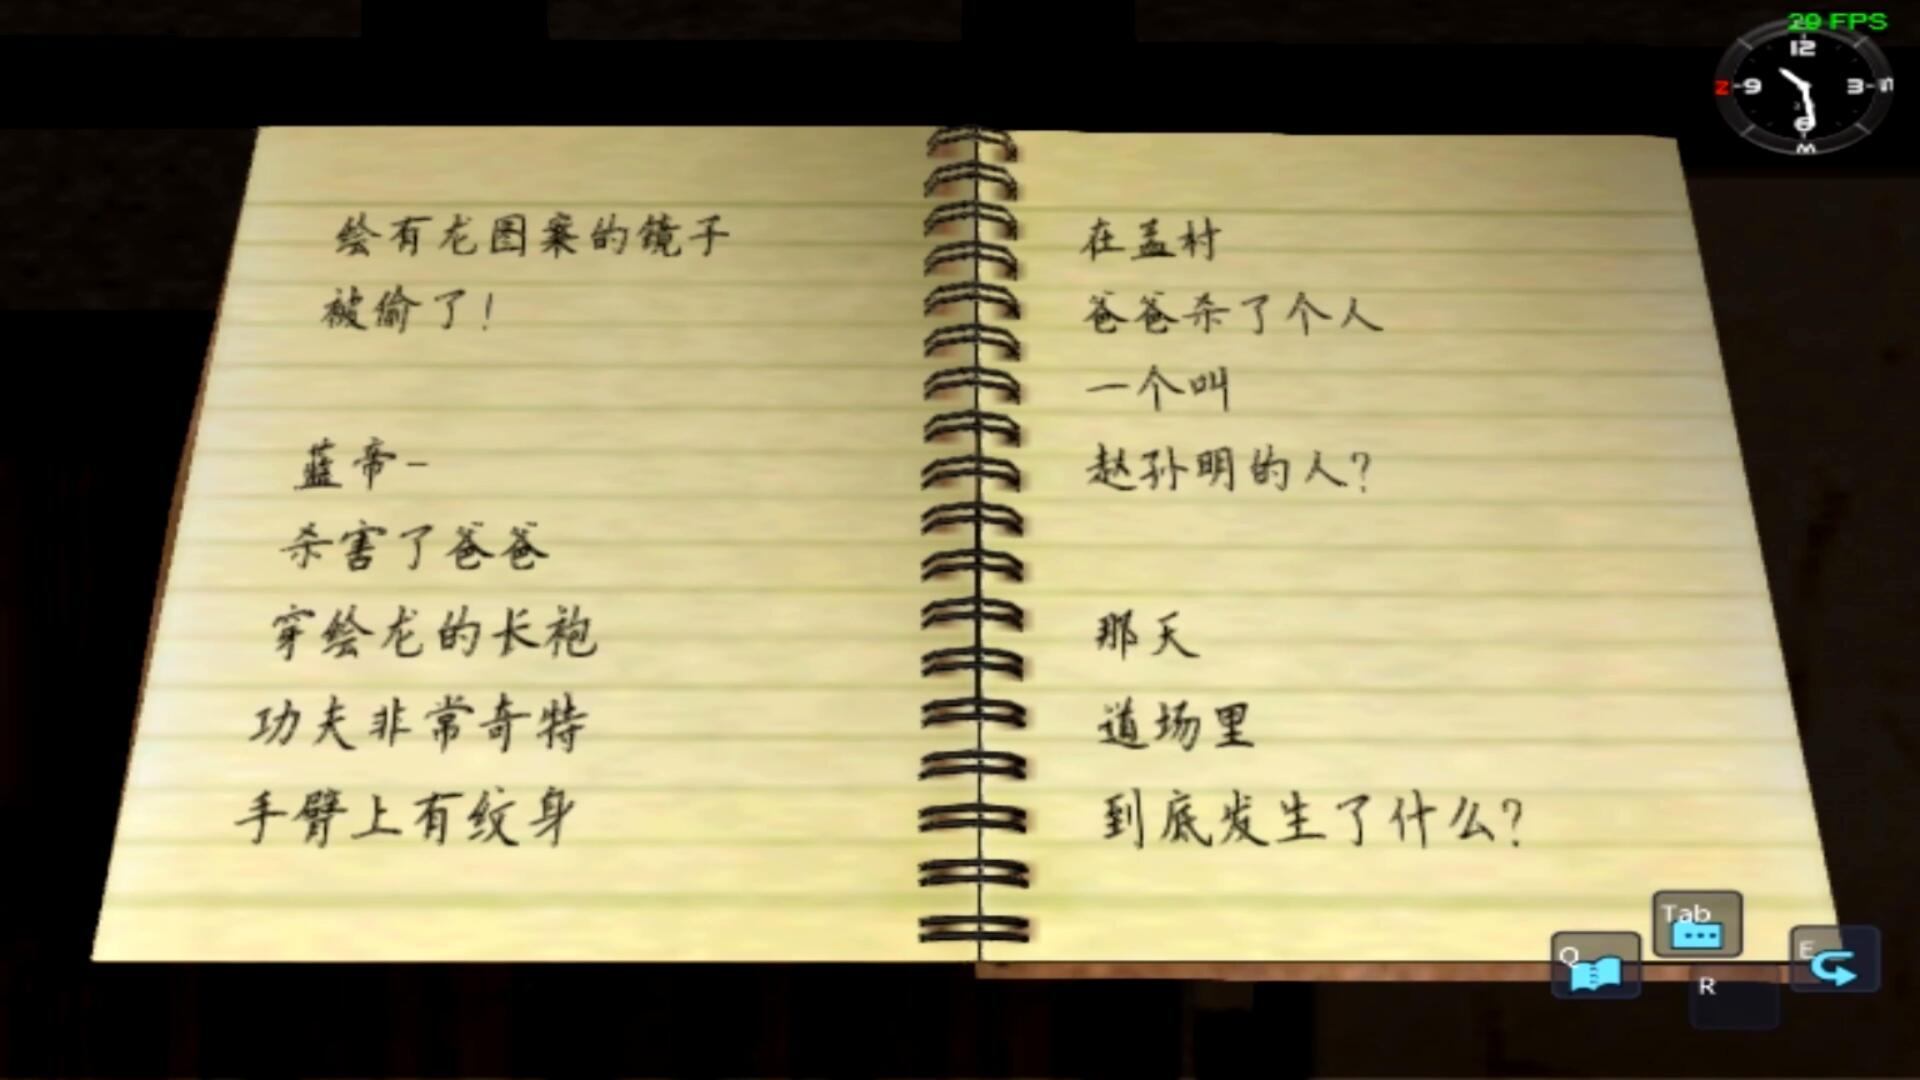 绘有龙图案的镜子
被偷了!
蓝帝-
杀害了爸爸
穿绘龙的长袍
功夫非常奇特
手臂上有纹身
在孟村
爸爸杀了个人
一个叫
赵孙明的人?
那天
道场里
到底发生了什么?
29 FPS
12
N
9
3
S
6
W
Tab
Q
E
R